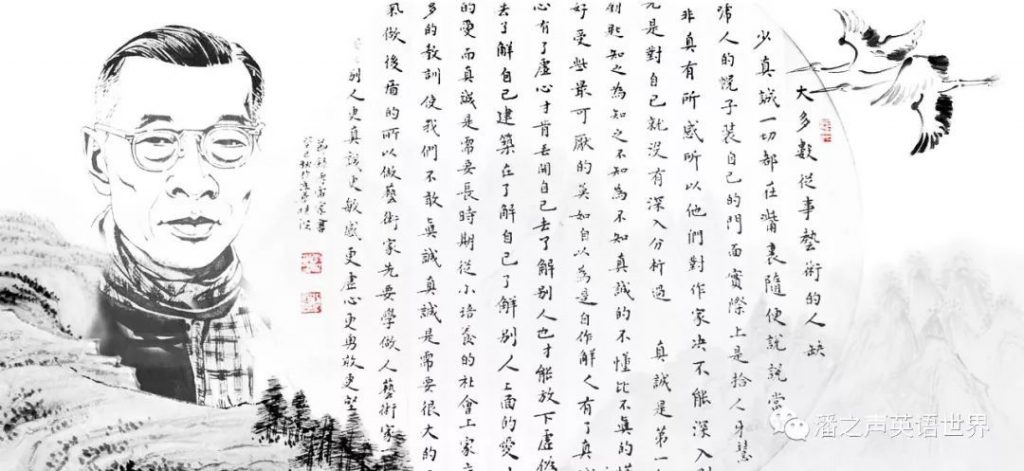 大多數從事藝術的人缺
少真誠一切部在嘴裏隨便說說當
人的幌子裝自己的門面實際上是拾人牙慧
非真有所感所以他們對作家決不能深入
先是對自己就沒有深入分析過 真誠是第一
知之為知之不知為不知真誠的不懂比不真的
好受些最可厭的莫如自以為是自作解人有了真誠
心有了虛心才肯丟開自己去了解別人也才能放下虛偽
去了解自己建築在了解自己了解別人上面的愛
的愛而真誠是需要長時期從小培養的社會上家
多的教訓使我們不敢真誠真誠是需要很大的
氣做後盾的所以做藝術家先要學做人藝術家
別人更真誠更敏感更虛心更勇敢更堅
潘之声英语世界